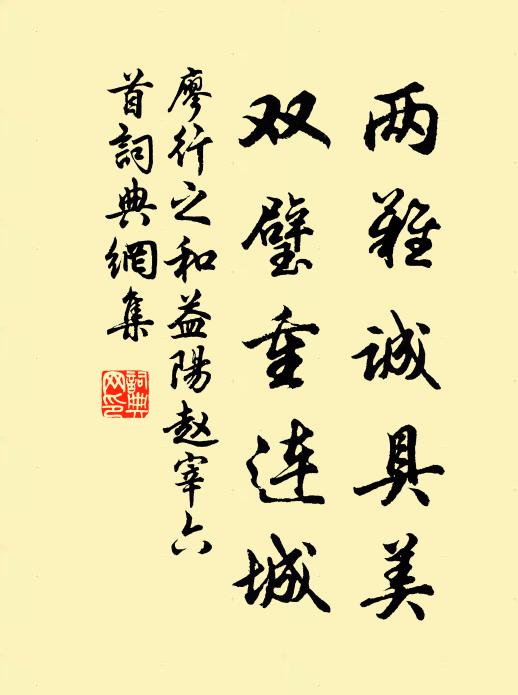 两难诚具美
双璧重连城
廖行之和益陽赵宰六
首詞典網集
詞典
网印